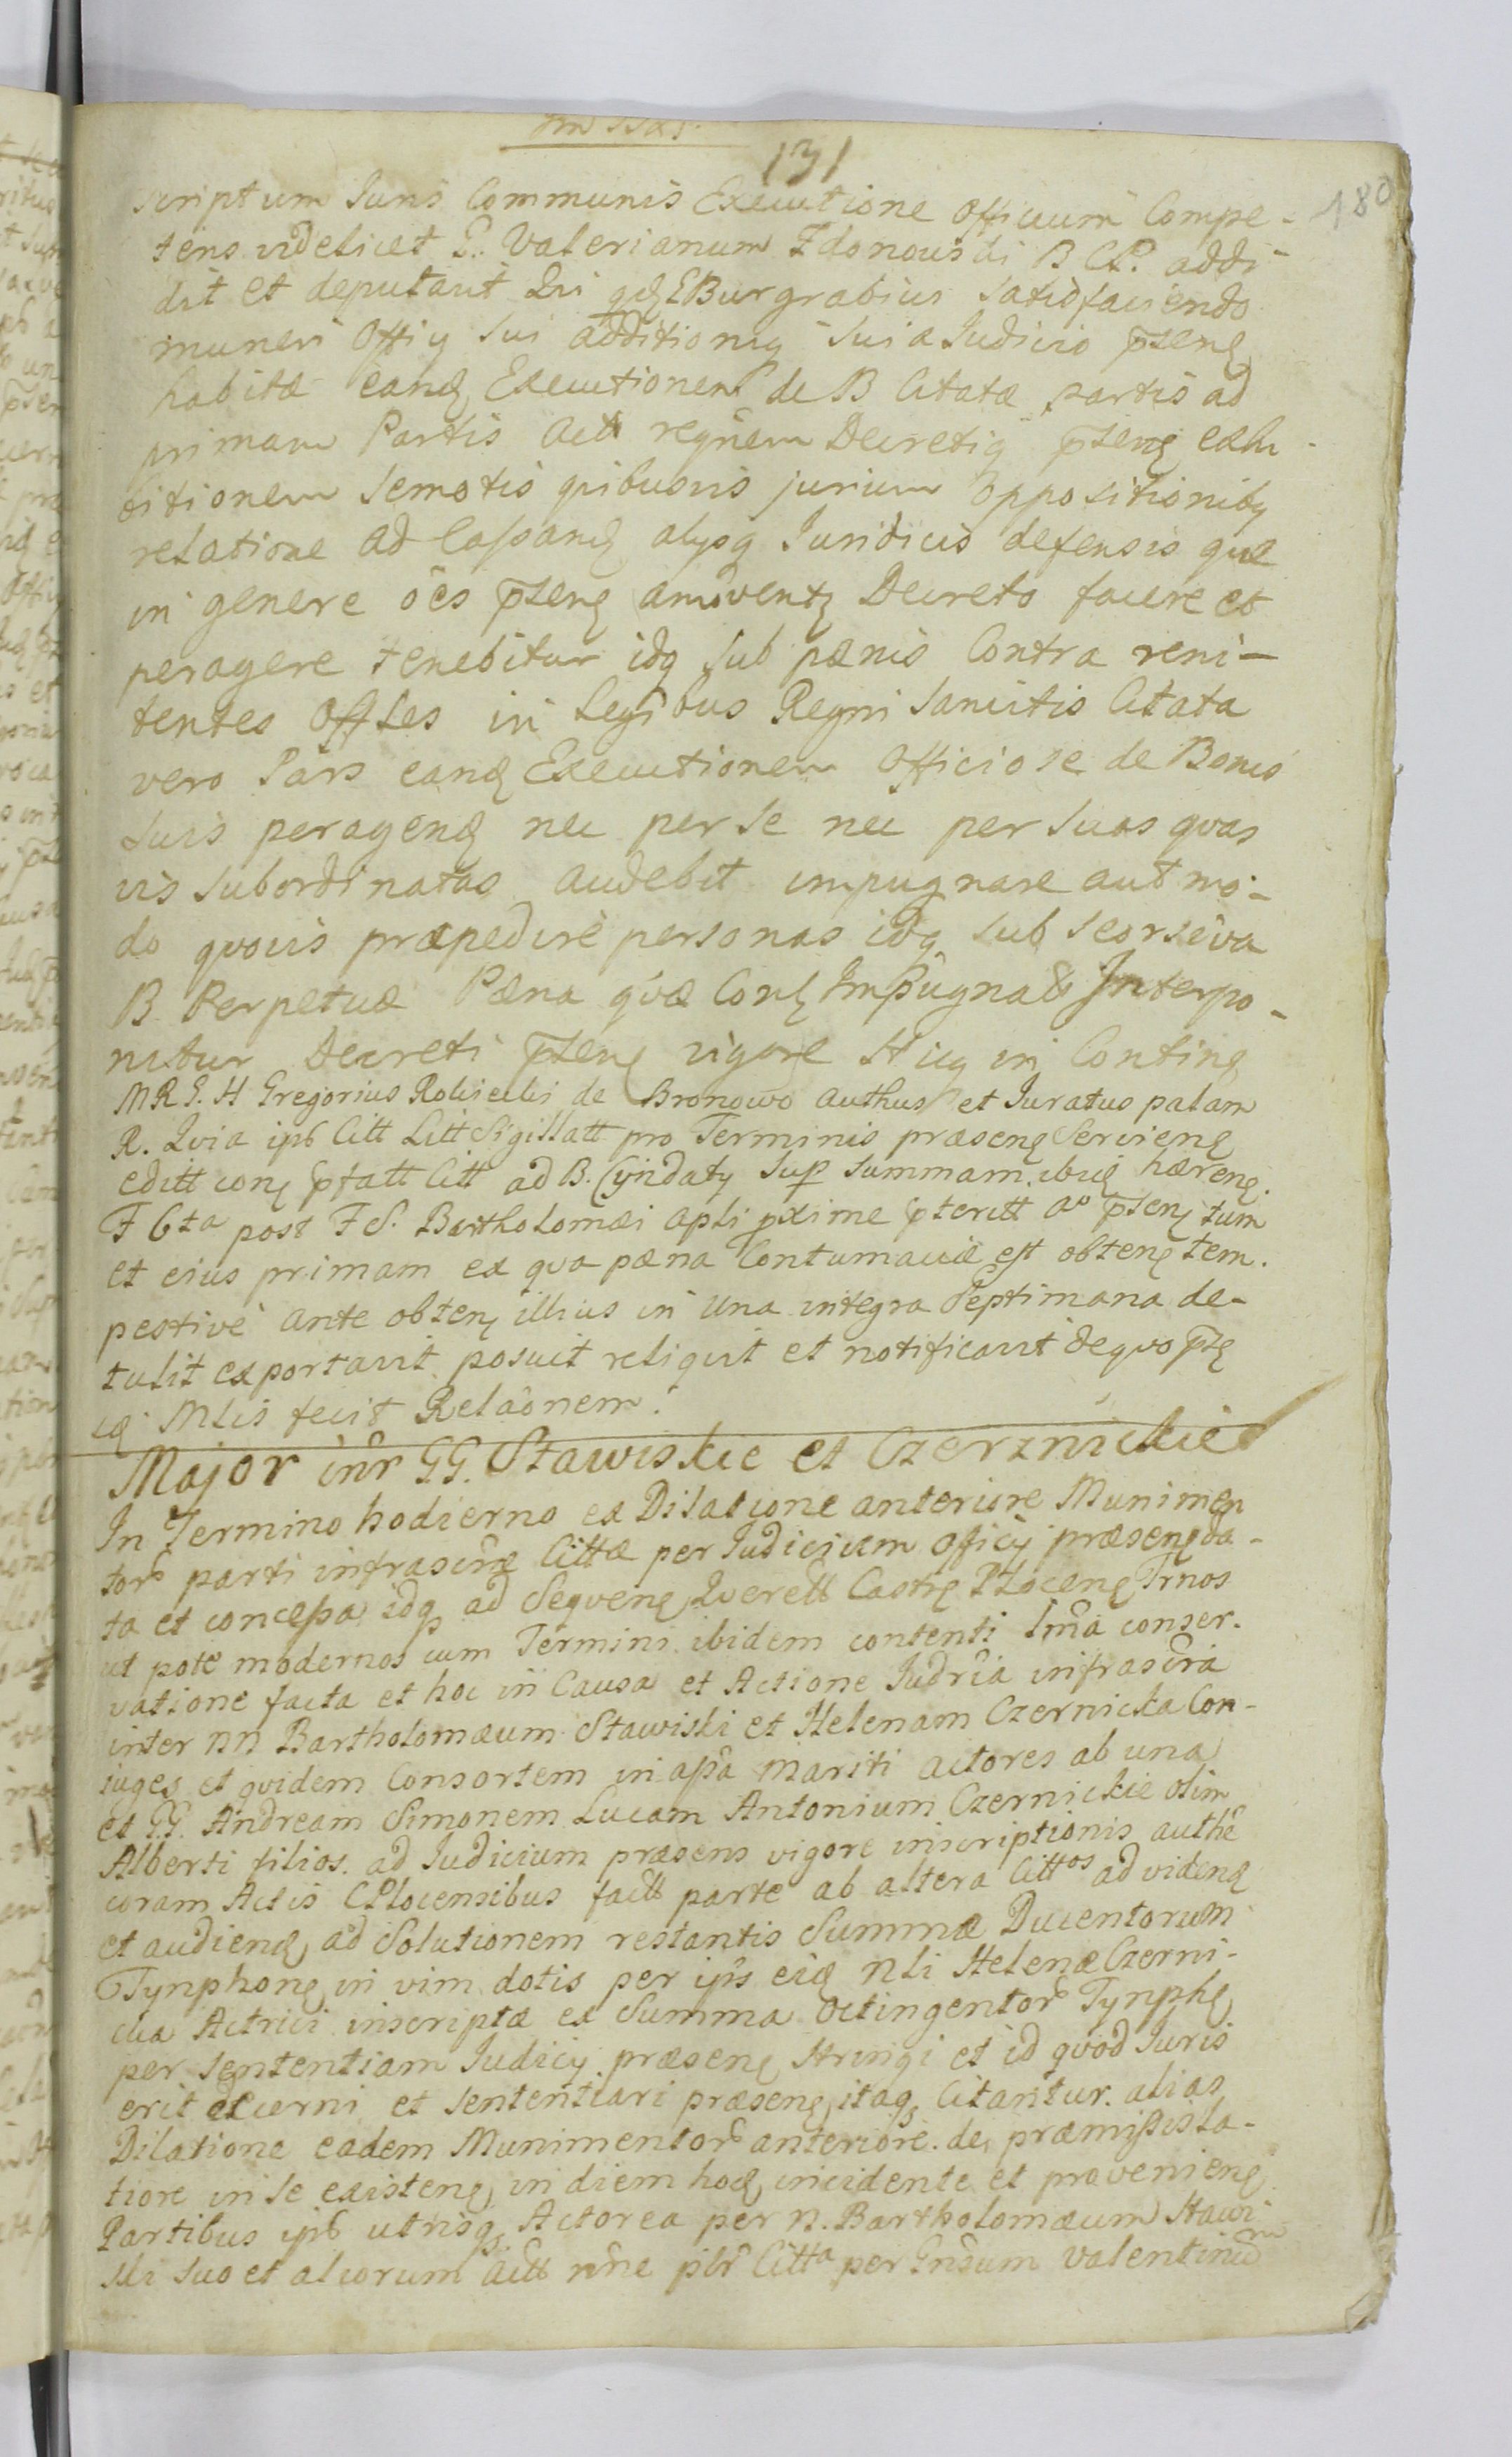 131
180
scriptum Juris Communis Executione Officium Compe-
tens videlicet G. Valerianum Zdonowski B CP. addi-
dit et deputavit Qui qd EBurgrabius satisfaciendo
muneri Officÿ sui additioniq sui a Judicio pzenq
habitæ eandq Executionem de B Citatæ partis ad
primam Partis Actt reqnem Decretiq pzenq exhi-
bitionem semotis quibusvis jurium oppositionibq
relatione ad Cassandq alÿsq Juridicis defensis quæ
in genere oes pzenq amoventq Decreto facere et
peragere tenebitur idq sub pænis Contra reni-
tentes Offles in Legibus Regni sancitis Citata
vero Pars eandq Executionem Officiose de Bonis
suis peragendq nec per se nec per suas quas
vis subordinatas audebit impugnare aut mo-
do quovis præpedire personas idq sub seorsiva
B Perpetuæ Pæna quæ Conq Impugnatt Interpo-
nitur Decreti pzenq vigore Hicq in Contine
MRG. H Gregorius Rolsiechi de Bronowo authus et Juratus palam
R. Quia ipb Citt Litt Sigillatt pro Terminis præsenq Servienq
editt conq pfatt Citt ad B. Cyndaty sup summam ibiq hærenq.
F 6ta post F S. Bartholomæi Apli pxime pteritt Ao pzenq tum
et eius primam ex qva pæna Contumaciæ est obtenq tem.
pestive ante obtenq illius in una integra Septimana de-
tulit exportavit posuit reliqvit et notificavit deqvo pzq
iq Mlis fecit Relaonem.
Major inr GG. Stawiskie et Czerznickie
In Termino hodierno ex Dilatione anteriore Munimen
tor parti infrascræ Cittæ per Judicium Officÿ præsenq da-
ta et concessa idq ad Seqvenq Qverell Castrq Plocenq Trnos
ut pote modernos cum Termini ibidem contenti lma conser-
vatione facta et hoc in Causa et Actione Judria infrascra
inter NN Bartholomæum Stawiski et Helenam Czernicka Con-
iuges et qvidem Consortem in asa mariti actores ab una
et GG. Andream Simonem Lucam Antonium Czernickie olim
Alberti filios ad Judicium præsens vigore inscriptionis authe
coram Actis CPlocensibus factt parte ab altera Cittos ad videndq
et audiendq ad Solutionem restantis Summæ Ducentorum
Tynphonq in vim dotis per ips eidq Nli Helenæ Czerni-
cka Actrici inscriptæ ex Summa Octingentor Tynphq
per sententiam Judicÿ præsenq stringi et id qvod Juris
erit decerni et sententiari præsenq itaq Citantur alias
Dilatione eadem Munimentor anteriore de præmissis la-
tiore in se existenq in diem hodq incidente et provenienq
Partibus ipb utrisq Actorea per N. Bartholomæum Stawi
ski suo et aliorum Actt nne pbr Citta per Gnsum Valentinum